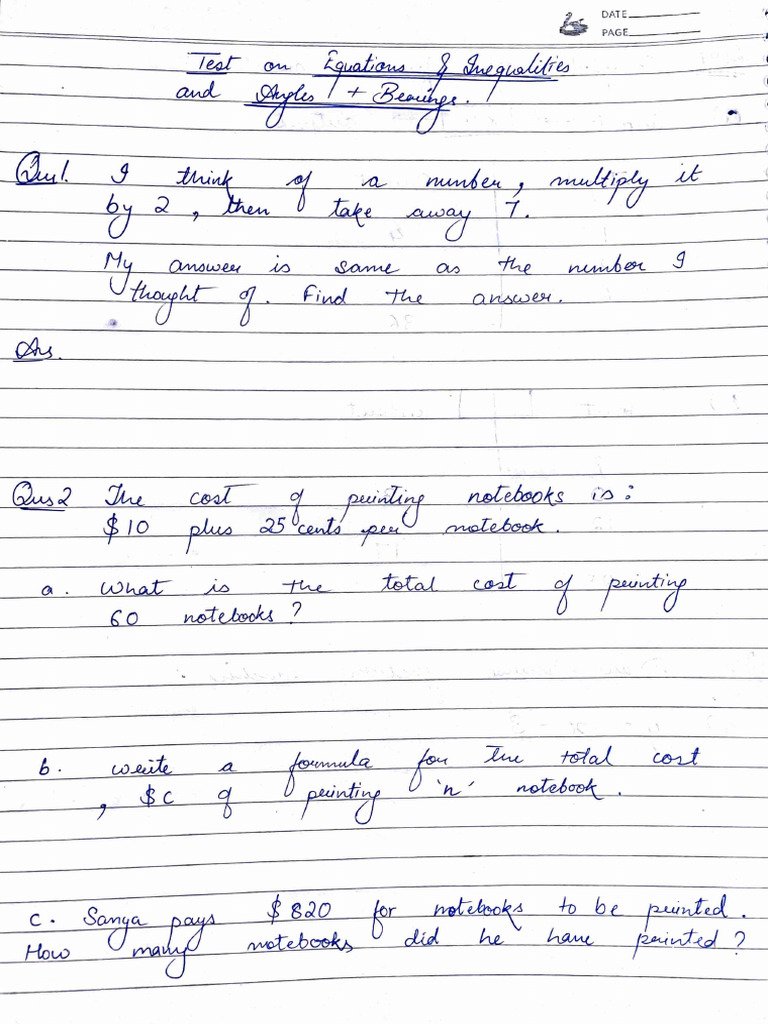 DATE
PAGE
Test on Equations & Inequalities
and Angles + Bearings.
Qus1. I think of a number, multiply it
by 2, then take away 7.
My answer is same as the number I
thought of. Find the answer.
Ans.
Qus2 The cost of printing notebooks is:
$10 plus 25 cents per notebook.
a. What is the total cost of printing
60 notebooks?
b. write a formula for the total cost
, $C of printing 'n' notebook.
c. Sanya pays $820 for notebooks to be printed.
How many notebooks did he have printed?